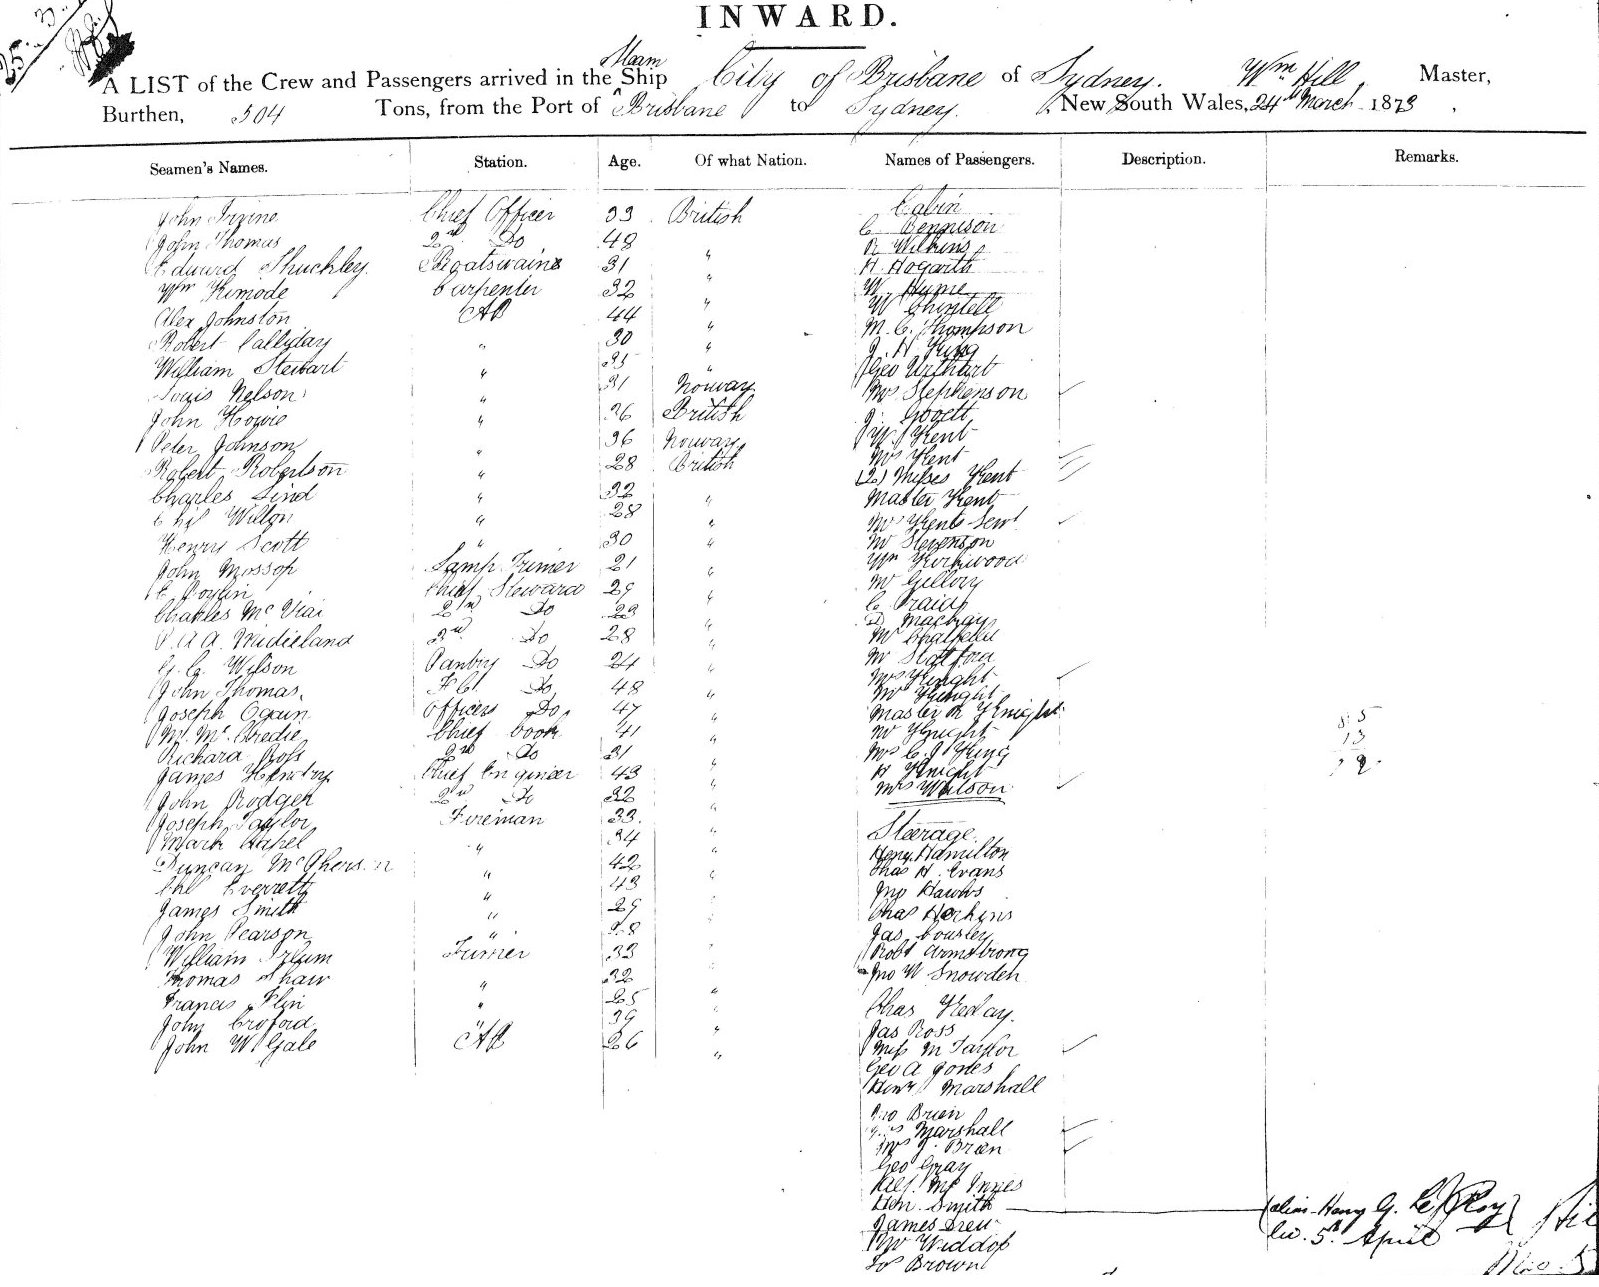 25. 3.
INWARD.
Steam
A LIST of the Crew and Passengers arrived in the Ship City of Brisbane of Sydney. Wm Hill Master,
Burthen, 504 Tons, from the Port of Brisbane to Sydney. New South Wales, 24th March 1873
Seamen's Names. Station. Age. Of what Nation. Names of Passengers. Description. Remarks.
Cabin
John Irvine Chief Officer 33 British C. Bennison
John Thomas 2nd Do 48 " R Wilkins
Edward Shuckley Boatswains 31 " H. Hogarth
Wm Kimode Carpenter 32 " W. Hume
Alex Johnston AB 44 " W
Robert Calliday " 30 " M. C. Thompson
William Stewart " 35 " J. H King
Louis Nelson " 31 Norway Geo Urthart
John Howie " 26 British Mrs Stephenson
Peter Johnson " 36 Norway J. Govett
Robert Robertson " 28 British W. Kent
Charles Lind " 32 " Mrs Kent
Chs Wilton " 28 " (2) Misses Kent
Henry Scott " 30 " Master Kent
John Mossop Lamp Trimer 21 " Mrs Kents Servt
Chief Steward 29 " Mr Stevenson
Charles Mc Viai 2nd Do 23 " Wm Kirkwood
P. A A. Mudieland 3rd Do 28 " Mr Gillory
G. C. Wilson Pantry Do 24 " C. Craig
John Thomas F C. Do 48 " D Mackay
Joseph Officers Do 47 " Mr Chatfield
M. Mc Credie Chief Cook 41 " Mr Statford
Richard Ross 2nd do 31 " Mrs Knight
James Hendry Chief Enginer 43 " Mr Knight
John Rodger 2nd Do 32 " Master R Knight
Joseph Taylor Fireman 33 " Mr Knight
Mark Hapel " 34 " Mrs C. J King
Duncan McPherson " 42 " H Knight
Chs Everrett " 43 " Mrs Wilson
James Smith " 29 " Steerage.
John Pearson " 28 " Heny. Hamilton
William Irlum Trimer 33 " Chas H. Evans
Thomas Shaw " 32 " Jno Hawks
Francis Flin " 25 " Chas Horkins
John Croford " 39 " Jas Cousley
John W Gale AB 26 " Robt Armstrong
Jno W Snowden
Chas
Jas Ross
Miss M Taylor
Geo A Jones
Henry Marshall
Jno Brien
Marshall
Mrs J. Brien
Geo Gray
Alf. Mc Innes
Hen. Smith (alias Henry G. Le Roy)
liv. 5th April
James Drew
Mr Widdop
Brown
85
13
72